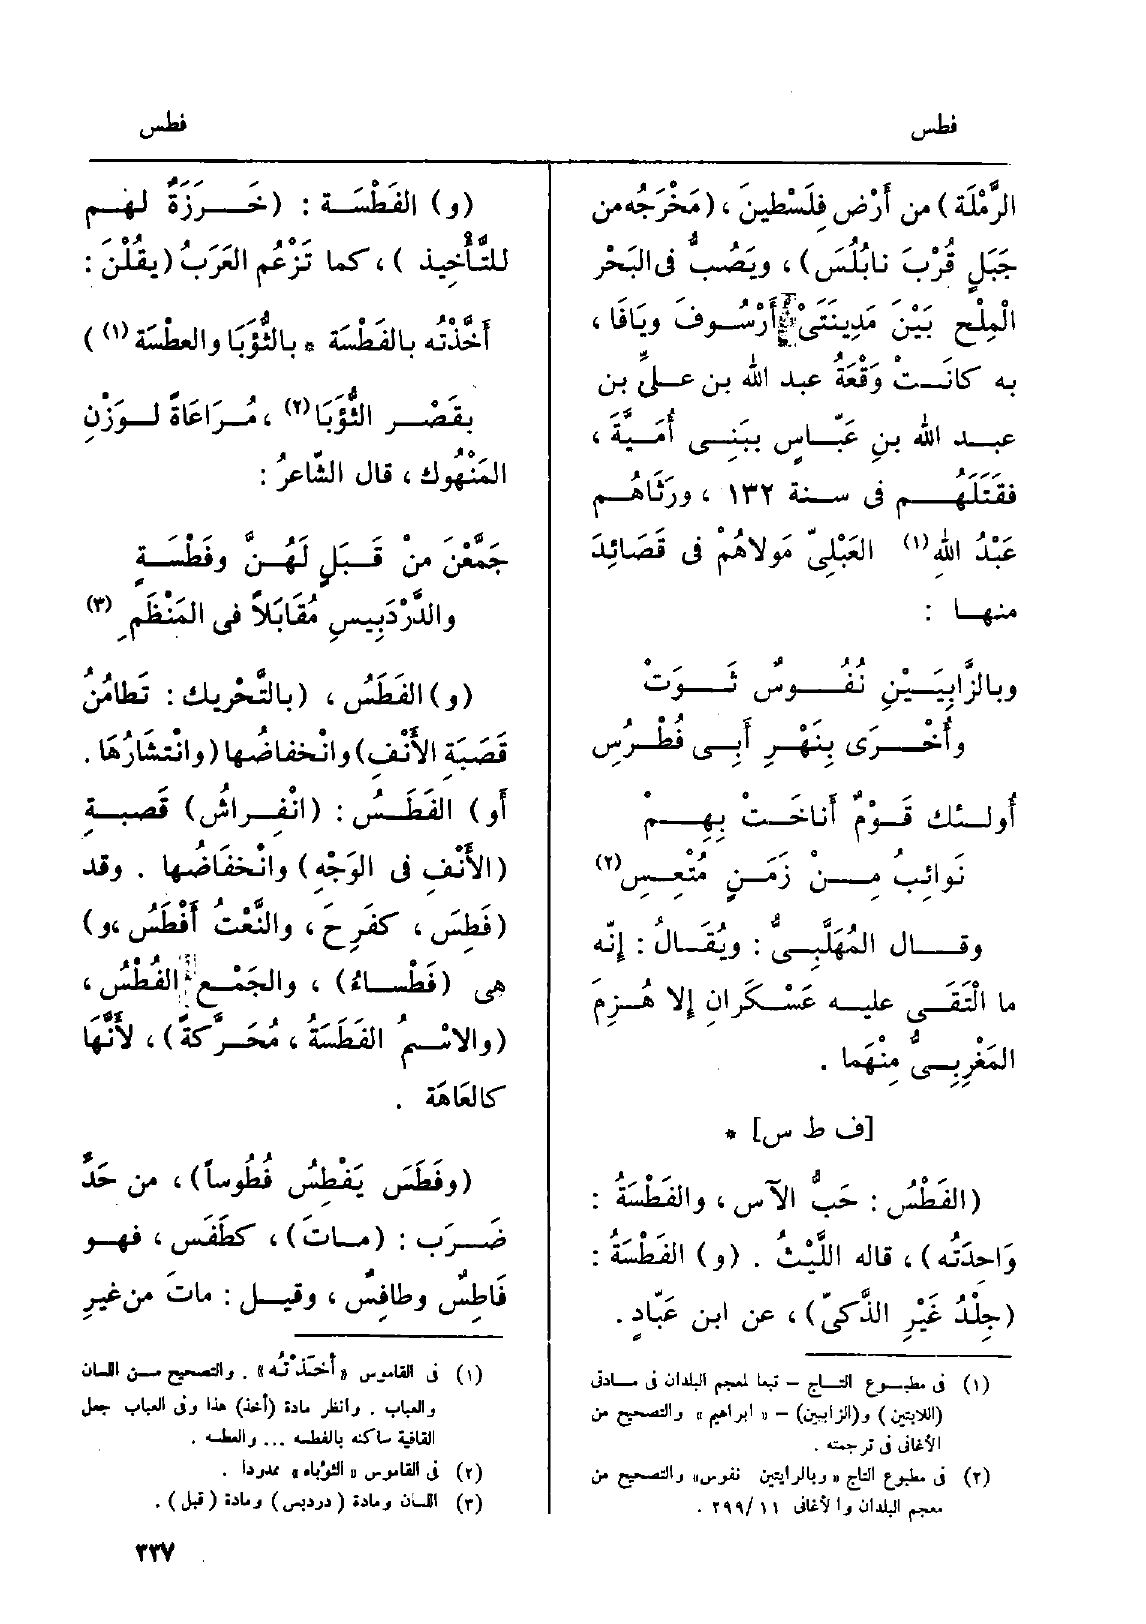 فطس
فطس
الرَّمْلَة) من أَرْض فِلَسْطينَ، (مَخْرَجُه من
جَبَلٍ قُرْبَ نابُلُسَ)، ويَصُبُّ فى البَحْر
المِلْح بَيْنَ مَدِينَتَىْ أَرْسُوفَ ويَافَا،
به كانَتْ وَقْعَةُ عبد الله بن علىِّ بن
عبد الله بنِ عَبّاسٍ ببَنِى أُمَيَّةَ،
فقَتَلَهُم فى سنة ١٣٢، ورَثَاهُم
عَبْدُ اللهِ(١) العَبْلِىّ مَولاهُمْ فى قَصَائِدَ
منها :
وبالزَّابِيَيْنِ نُفُوسٌ ثَوَتْ
وأُخْرَى بِنَهْرِ أَبِى فُطْرُسِ
أُولئك قَوْمٌ أَناخَتْ بِهِمْ
نَوائِبُ مِنْ زَمَنٍ مُتْعِسِ(٢)
وقال المُهَلَّبِىُّ : ويُقَالُ : إِنّه
ما الْتَقَى عليه عَسْكَرانِ إلا هُزِمَ
المَغْرِبِىُّ مِنْهَما .
[ف ط س] *
(الفَطْسُ : حَبُّ الآس، والفَطْسَةُ :
وَاحِدَتُه)، قاله اللَّيْثُ . (و) الفَطْسَةُ :
(جِلْدُ غَيْرِ الذَّكىّ)، عن ابن عَبّادٍ .
(١) فى مطبوع التاج – تبعا لمعجم البلدان فى مادتى
(اللابتين) و(الزابيين) – «ابراهيم» والتصحيح من
الأغانى فى ترجمته .
(٢) فى مطبوع التاج «وبالرايتين نفوس» والتصحيح من
معجم البلدان والأغانى ١١/٢٩٩ .
(و) الفَطْسَة : (خَرَزَةٌ لهم
للتَّأْخِيذ)، كما تَزْعُم العَرَبُ (يقُلْنَ :
أَخَّذْتُه بالفَطْسَة * بالثُّؤَبَا والعطْسَة(١))
بقَصْر الثُّؤَبَا(٢)، مُرَاعَاةً لوَزْنِ
المَنْهُوك، قال الشّاعرُ :
جَمَّعْنَ مِنْ قَبَلٍ لَهُنَّ وفَطْسَةٍ
والدَّرْدَبِيسِ مُقَابَلاً فى المَنْظَمِ(٣)
(و) الفَطَسُ، (بالتَّحْرِيك : تَطامُنُ
قَصَبَةِ الأَنْفِ) وانْخفاضُها (وانْتشَارُهَا .
أَو) الفَطَسُ : (انْفِراشُ) قَصبةِ
(الأَنْفِ فى الوَجْهِ) وانْخفَاضُها . وقد
(فَطِسَ، كفَرِحَ، والنَّعْتُ أَفْطَسُ،و)
هى (فَطْساءُ)، والجَمْع الفُطْسُ،
(والاسْمُ الفَطَسَةُ، مُحَرَّكةً)، لأَنَّهَا
كالعَاهَة .
(وفَطَسَ يَفْطِسُ فُطُوساً)، من حَدِّ
ضَرَب : (ماتَ)، كطَفَس، فهو
فَاطِسٌ وطافِسٌ، وقيل : ماتَ من غيرِ
(١) فى القاموس «أَخَذْتُه» . والتصحيح من اللسان
والعباب . وانظر مادة (أخذ) هذا وفى العباب جعل
القافية ساكنه بالفطسه ... والعطسه .
(٢) فى القاموس «الثؤباء» ممدوداً .
(٣) اللسان ومادة (دردبس) ومادة (قبل) .
٣٣٧